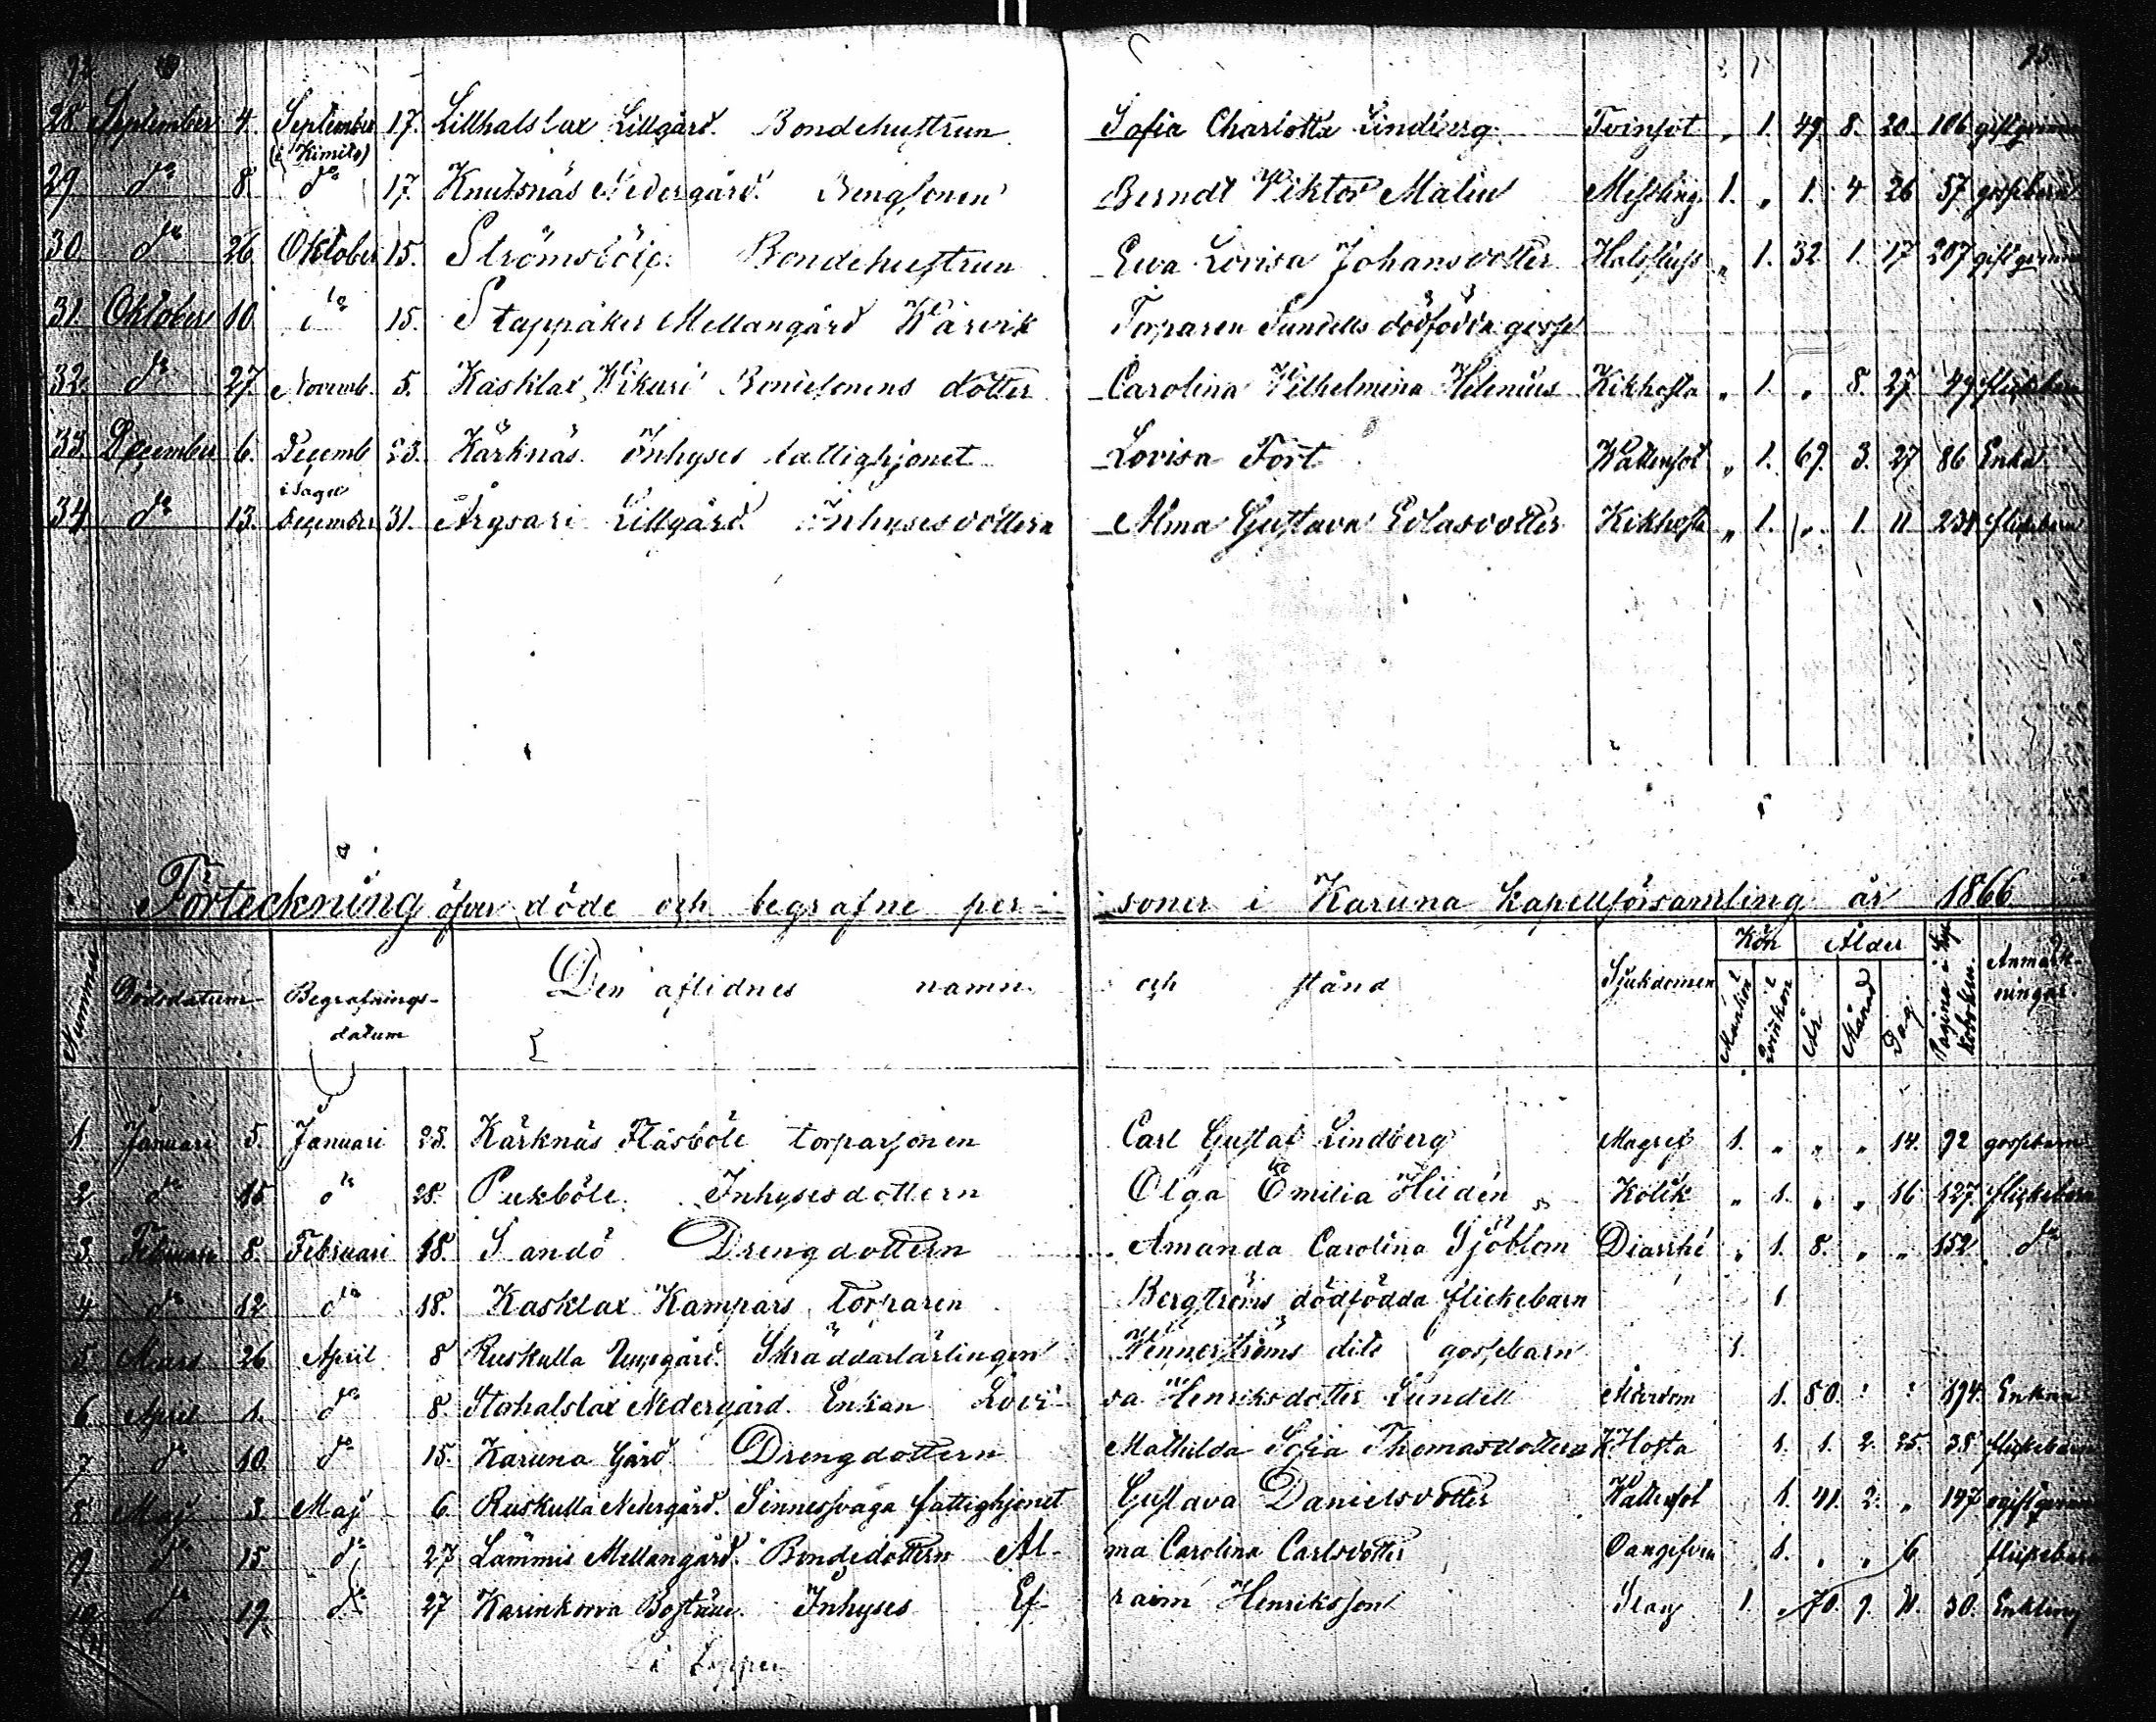 28. September 4. September 17. Lillhalslax Lillgård. Bondehustrun Sofia Charlotta Lindberg Tvinsot „ 1. 49. 8. 20. 106 gift qvinna
(i Kimito)
29 do 8. do 17. Knutsnäs Nedergård. Berndt Viktor Malin Messling 1. „ 1. 4 26 57 gossebarn
30 do 26 Oktober 15. Strömsböle. Bondehustrun Ewa Lovisa Johansdotter Halsfluss „ 1. 32 1. 17 207 gift qvinna
31. Oktober 10. do 15. Stappåker Mellangård Wärvik Torparen Sundells dödfödda gosse
32. do 27. Novemb. 5. Kasklax Wikari Bondesonens dotter Carolina Vilhelmina Helenius Kikhosta „ 1. „ 8. 27 49 flickebarn
33. December 6. Decemb 23. Kärknäs Inhyses fattighjonet Lovisa Fort Wattensot „ 1. 69. 3. 27 86 Enka
i Sagu
34. do 13. December 31. Årgsari Lillgård Inhysesdottern Alma Gustava Edlasdotter Kikhosta „ 1. „ 1. 11 238 flickebarn
Förteckning öfver döde och begrafne personer i Karuna kapellförsamling år 1866
Nummer Dödsdatum Begrafnings-datum Den aflidnes namn och stånd Sjukdomen Kön Ålder Pagina i Kyrkoboken. Anmärkningar.
Mankön Qvinkön År. Månad Dag
1. Januari 5. Januari 28. Kärknäs Fläsböle torparsonen Carl Gustaf Lindberg Magref 1. „ „ „ 14. 92 gossebarn
2 do 15 do 28. Pukböle. Inhysesdottern Olga Emilia Heldén Kolik „ 1. „ „ 16 127. flickebarn
3. Februari 8. Februari 18. Sandö Drengdottern Amanda Carolina Sjöblom Diarrhé „ 1. 8. „ „ 152 do
4 do 12 do 18. Kasklax Kampars torparen Bergströms dödfödda flickebarn 1
5 Mars 26 April 8 Ruskulla Uppgård. Skräddarlärlingen Wennerströms dito gossebarn 1.
6 April 1. do 8. Storhalslax Nedergård. Enkan Lovisa Henriksdotter Lundell Ålderdom 1. 80. 194. Enka
7 do 10. do 15. Karuna Gård Drengdottern Mathilda Sofia Thomasdotter K.Hosta 1. 1. 2. 25. 38 flickebarn
8 Maj 3. Maj 6. Ruskulla Nedergård. Sinnessvaga fattighjonet Gustava Danielsdotter Wattensot 1. 41. 2. „ 147 ogift qvinna
9. do 15. do 27 Lammis Mellangård. Bondedottern Alma Carolina Carlsdotter Oangifven 1. „ „ 6 flickebarn
10. do 19. do 27 Karinkorva Boställe. Inhyses Efraim Henriksson Slag 1. „ 70. 9. 30. Enkling